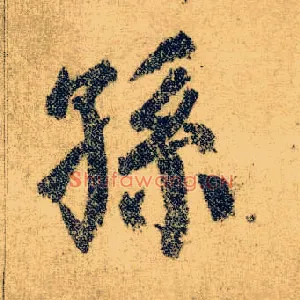 孫
Shufawang.cn